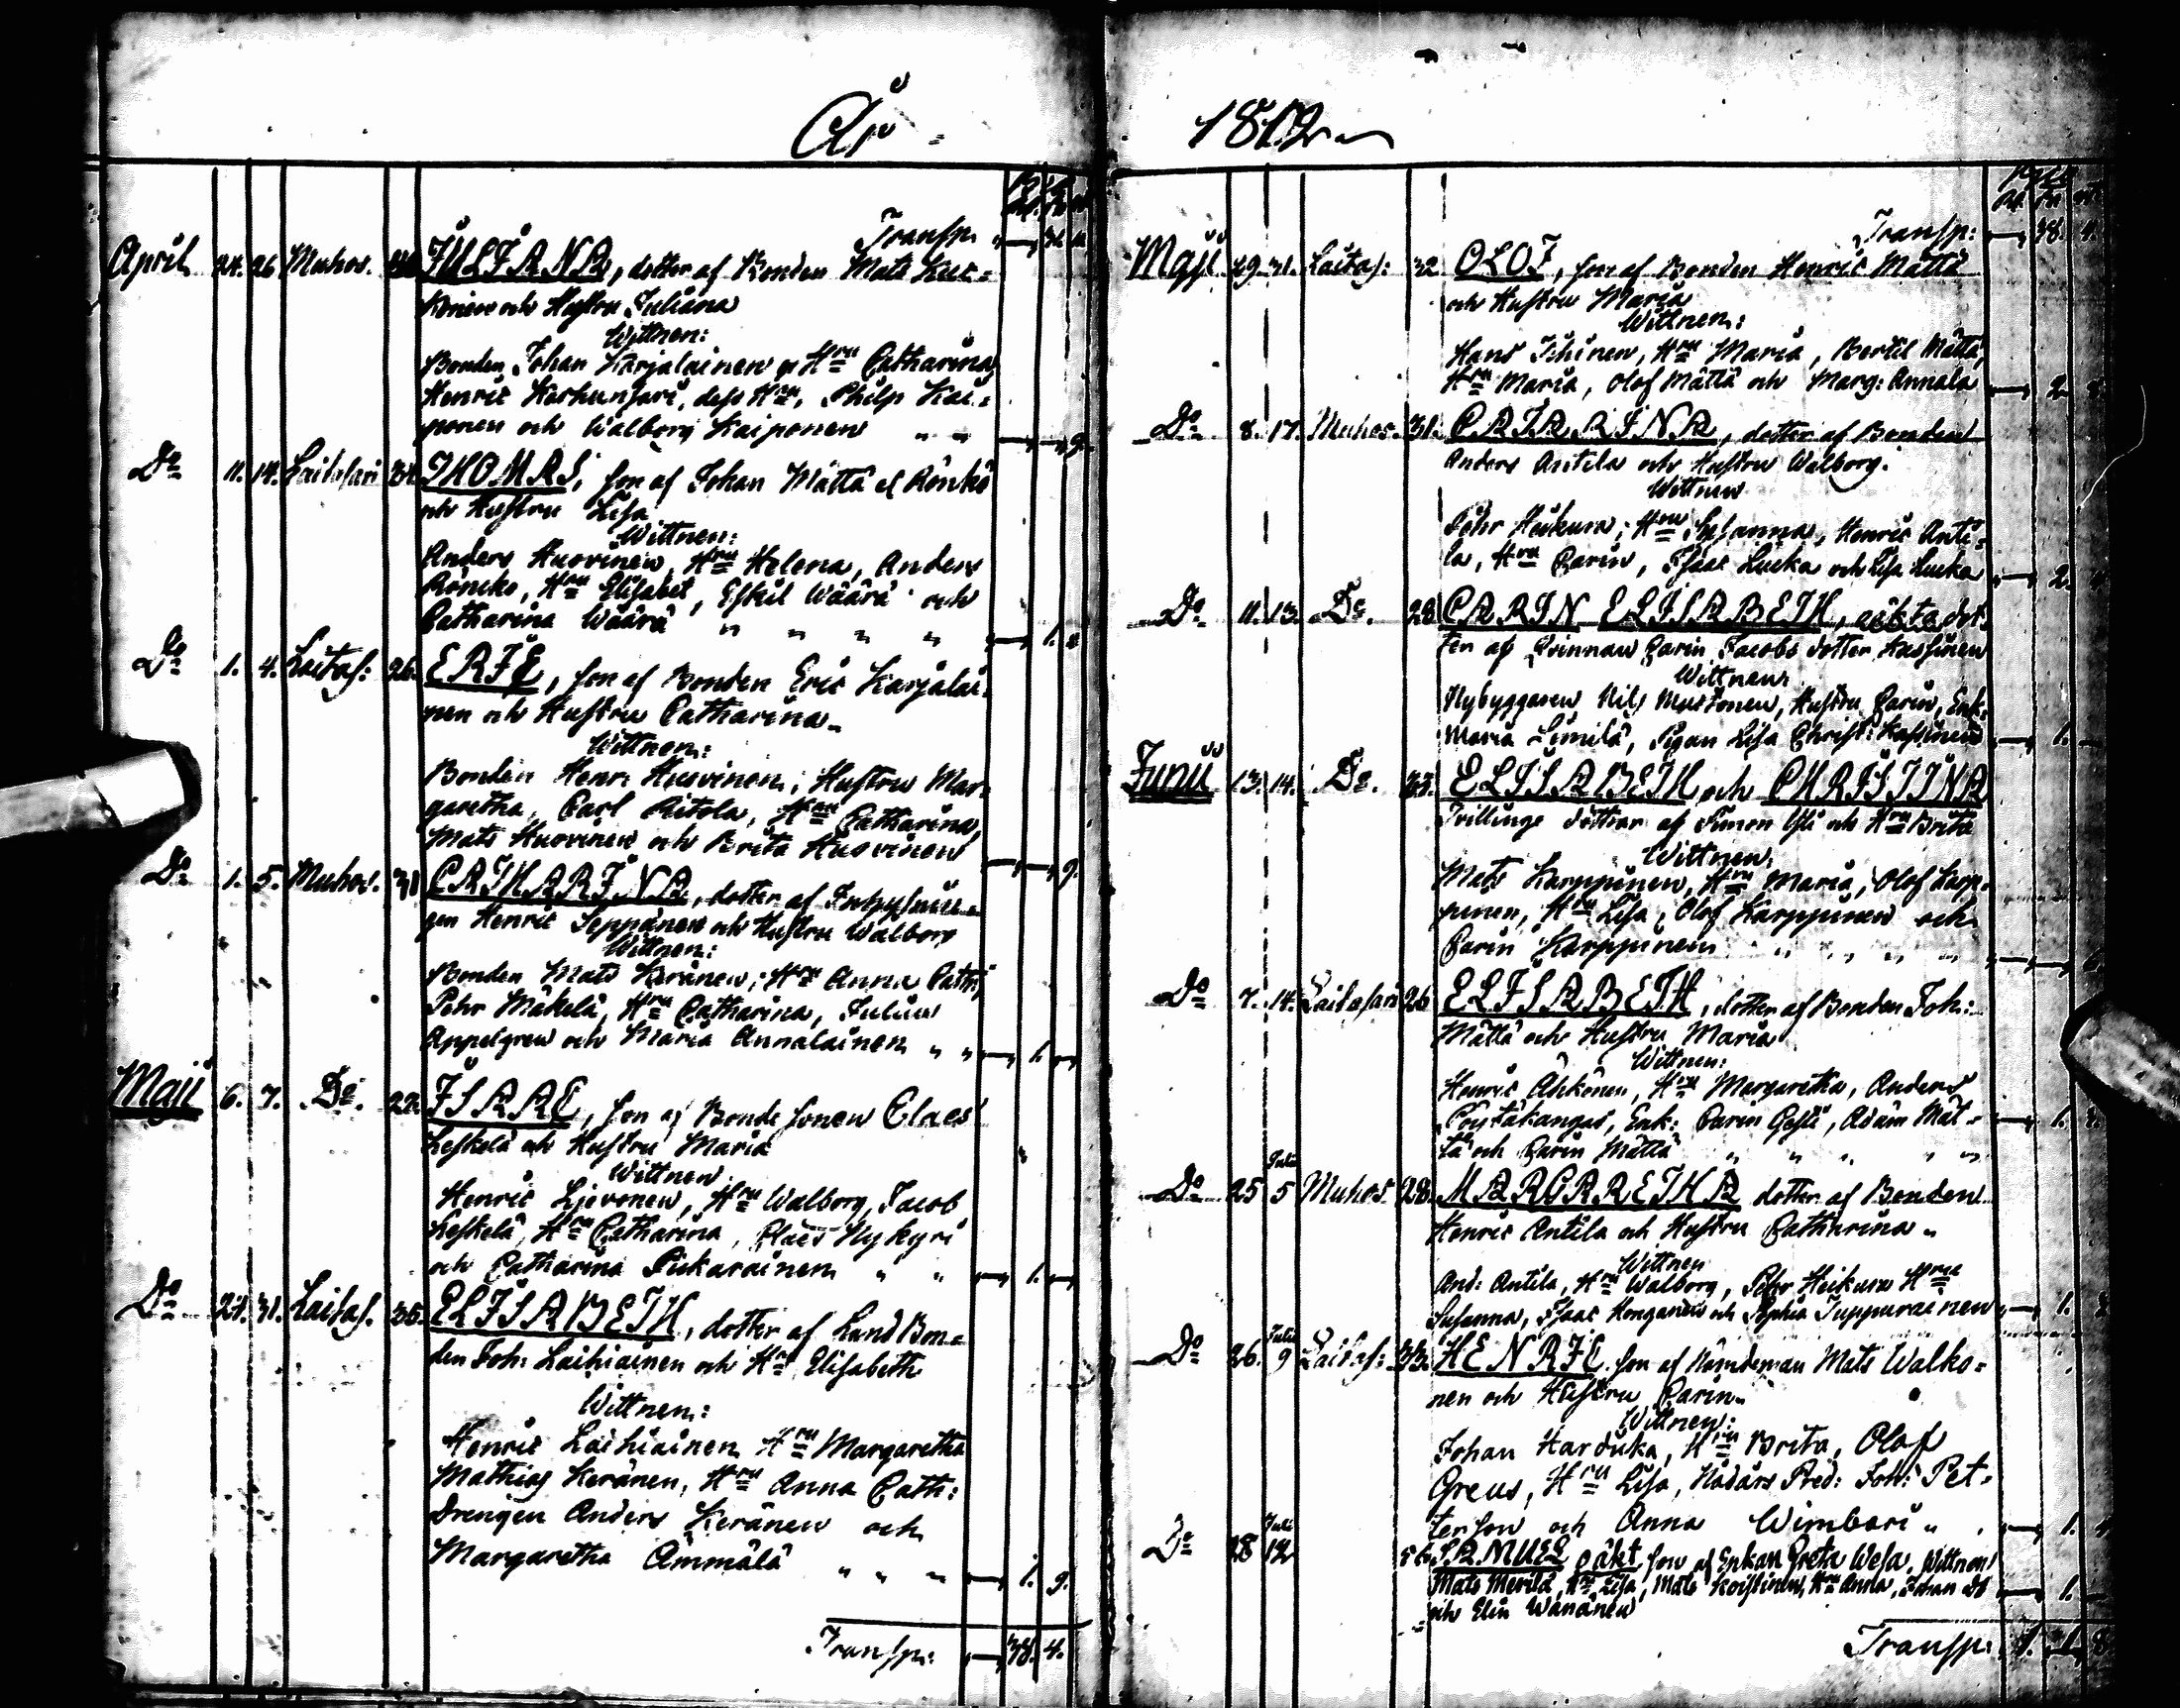 År 1812
Transp. 
April 24. 26 Muhos. JULIANA, dotter af Bonden Mats Kur-
och Hustru Juliana
Wittnen:
Bonden Johan Karjalainen H:ru Catharina,
Henric Korhunjari, dess H:ru, Philp Kai-
ponen och Walborg Kaiponen " " 9.
D:o 11. 14. Laitasari THOMAS, son af Johan Mättä el Rönkö
och Hustru Lisa
Wittnen:
Anders Huovinen, H:ru Helena, Anders
Röncko, H:ru Elisabet, Eskil Wäärä och
Catharina Wäärä " " " " 1.
D:o 1. 4. Laitas: 26. ERIC, son af Bonden Eric Karjalai-
nen och Hustru Catharina
Wittnen:
Bonden Henr: Huovinen, Hustru Mar-
garetha, Carl Ritola, H:ru Catharina,
Mats Huovinen och Brita Huovinen 9.
D:o 1. 5. Muhos. 31 CATHARINA, dotter af
gen Henric Seppänen och Hustru Walborg
Wittnen:
Bonden Mats Keränen, H:ru Anna Cath:
Pehr Mäkelä, H:ru Catharina, Julius
Appelgren och Maria Annalainen " " 1.
Maji 6. 7. D:o 22. ISAAC, son af Bonde sonen Claes
Leskelä och Hustru Maria
Wittnen
Henric Ljevonen, H:ru Walborg, Jacob
Leskelä, H:ru Catharina, Claes Nykyri
och Catharina Pikarainen " " 1.
D:o 27. 31. Laitas. 35. ELISABETH, dotter af Land Bon-
den Joh: Laihiainen och H:ru Elisabeth
Wittnen:
Henric Laihiainen H:ru Margaretha
Mathias Keränen, H:ru Anna Cath:
Drengen Anders Keränen och
Margaretha Ämmälä " " " 1. 9.
Transp: 38. 4.
Transp: 38. 4.
Maji 29. 31. Laitas: 32 OLOF, son af Bonden Henric Mättä
och Hustru Maria
Wittnen:
Hans Ihinen, H:ru Maria, Bertil Mättä,
H:ru Maria, Olof Mättä och Marg: Annala 2.
D:o 8. 17. Muhos. 31. CATARINA, dotter af Bonden
Anders Antila och Hustru Walborg.
Wittnen
Pehr Heikura, H:ru Susanna, Henric Anti-
la, H:ru Carin, Isaac Lucka och Lisa Lucka 2.
D:o 11. 13. D:o 28 CARIN ELISABETH, oäkta dot-
ter af Qvinnan Carin Jacobs dotter Hassinen
Wittnen
Nybyggaren Nils Mustonen, Hustru Carin, Enk:
Maria Limilä, Pigan Lisa Christ: Hassinen 1.
Junii 13. 14. D:o 33. ELISABETH och CHRISTINA
Tvillinge döttrar af Simon och H:ru Brita
Wittnen,
Mats Karppinen, H:ru Maria, Olof Karp-
pinen, H:ru Lisa, Olof Karppinen och
Carin Karppinen " " " "
D:o 7. 14. Laitasari 26 ELISABETH, dotter af Bonden Joh:
Mättä och Hustru Maria
Wittnen:
Henric Ahkonen, H:ru Margaretha, Anders
Pöytäkangas, Enk: Carin, Adam Mät-
tä och Carin Mättä " " " " 1.
D:o 25 Julii 5 Muhos. 28. MARGARETHA dotter af Bonden
Henric Antila och Hustru Catharina
Wittnen
And: Antila, H:ru Walborg, Pehr Heikura H:ru
Susanna, Isaac Honganen och Sophia Tuppurainen 1.
D:o 26. Julii 9 Laitas: 33. HENRIC son af Nämdeman Mats Walko-
nen och Hustru Carin
Wittnen:
Johan Harduka, H:ru Brita, Olof
Greus, H:ru Lisa, Nådårs Pred: Joh: Pet-
terson och Anna Wimbari " 1. 4
D:o 28 Julii 12 SAMUEL oäkt son af Enkan Greta Wesa. Wittnen
Mats Merilä, H:ru Lisa, Mats Koistinen, H:ru Anna, Johan D:o
och Elin Wänänen 1.
Transp: 1.